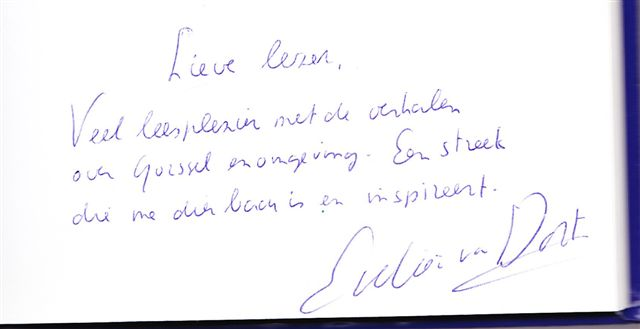 Lieve lezer,
Veel leesplezier met de verhalen
over Gorssel en omgeving. Een streek
die me dierbaar is en inspireert.
Evelien van Dort